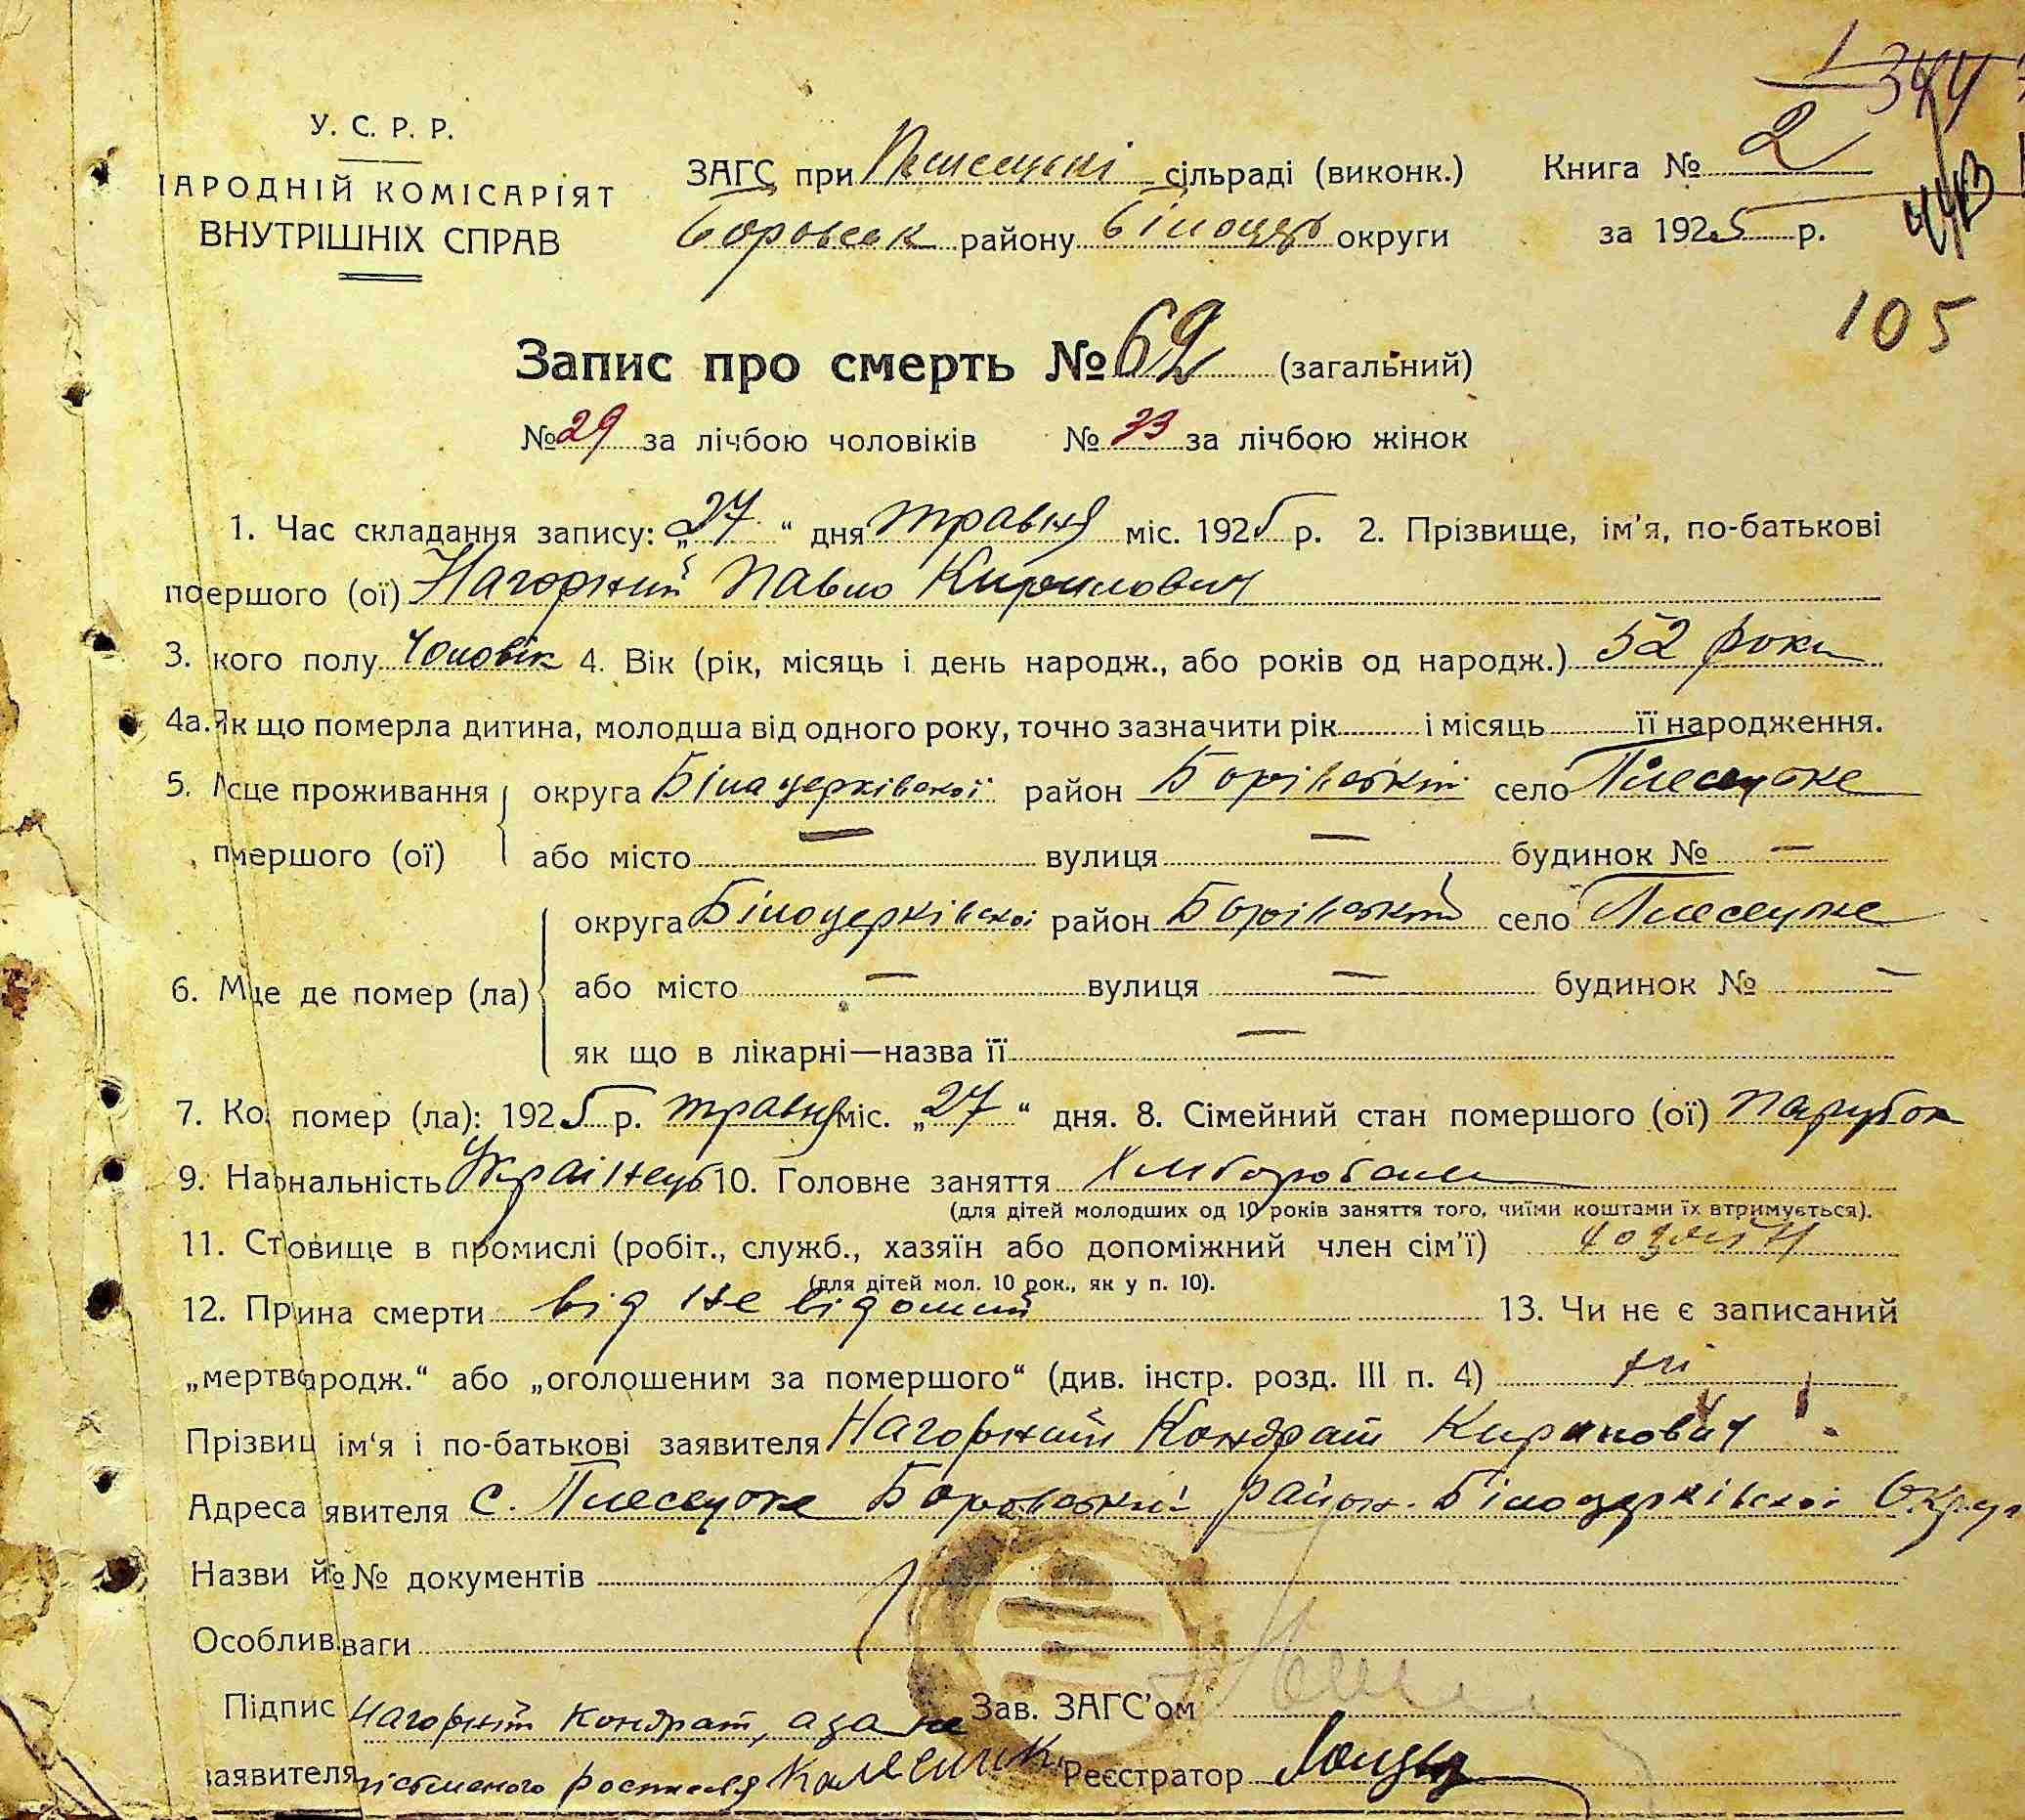 344
У. С. Р. Р.
НАРОДНІЙ КОМІСАРІЯТ
ВНУТРІШНІХ СПРАВ
ЗАГС при Плисецькі сільраді (виконк.)
Боровськ району Білоцерк округи
Книга № 2
за 1925 р.
443
105
Запис про смерть № 62 (загальний)
№ 29 за лічбою чоловіків № 33 за лічбою жінок
1. Час складання запису: „27“ дня травня міс. 1925 р. 2. Прізвище, ім'я, по-батькові
поершого (ої) Нагорний Павло Кирилович
3. кого полу Чоловік 4. Вік (рік, місяць і день народж., або років од народж.) 52 роки
4а. Як що померла дитина, молодша від одного року, точно зазначити рік і місяць її народження.
5. Мсце проживання округа Білацерківської район Борівський село Плесецьке
пмершого (ої) або місто — вулиця — будинок № —
округа Білоцерківської район Борівський село Плесецьке
6. Мце де помер (ла) або місто — вулиця — будинок № —
як що в лікарні—назва її —
7. Ко помер (ла): 1925 р. травня міс. „27“ дня. 8. Сімейний стан помершого (ої) парубок
9. Наональність Українець 10. Головне заняття Хліборобам
(для дітей молодших од 10 років заняття того, чиїми коштами їх втримується).
11. Стовище в промислі (робіт., служб., хазяїн або допоміжний член сім'ї) хозяїн
(для дітей мол. 10 рок., як у п. 10).
12. Прина смерти від не відомий 13. Чи не є записаний
„мертвородж.“ або „оголошеним за помершого“ (див. інстр. розд. III п. 4) ні
Прізвищ ім'я і по-батькові заявителя Нагорний Кондрат Кирилович
Адреса явителя с. Плесецьке Боровський район Білоцерківської Округи
Назви й №№ документів
Особлив ваги
Підпис Нагорний Кондрат, а за не Зав. ЗАГС'ом
заявителя письменого росписавсь Реєстратор